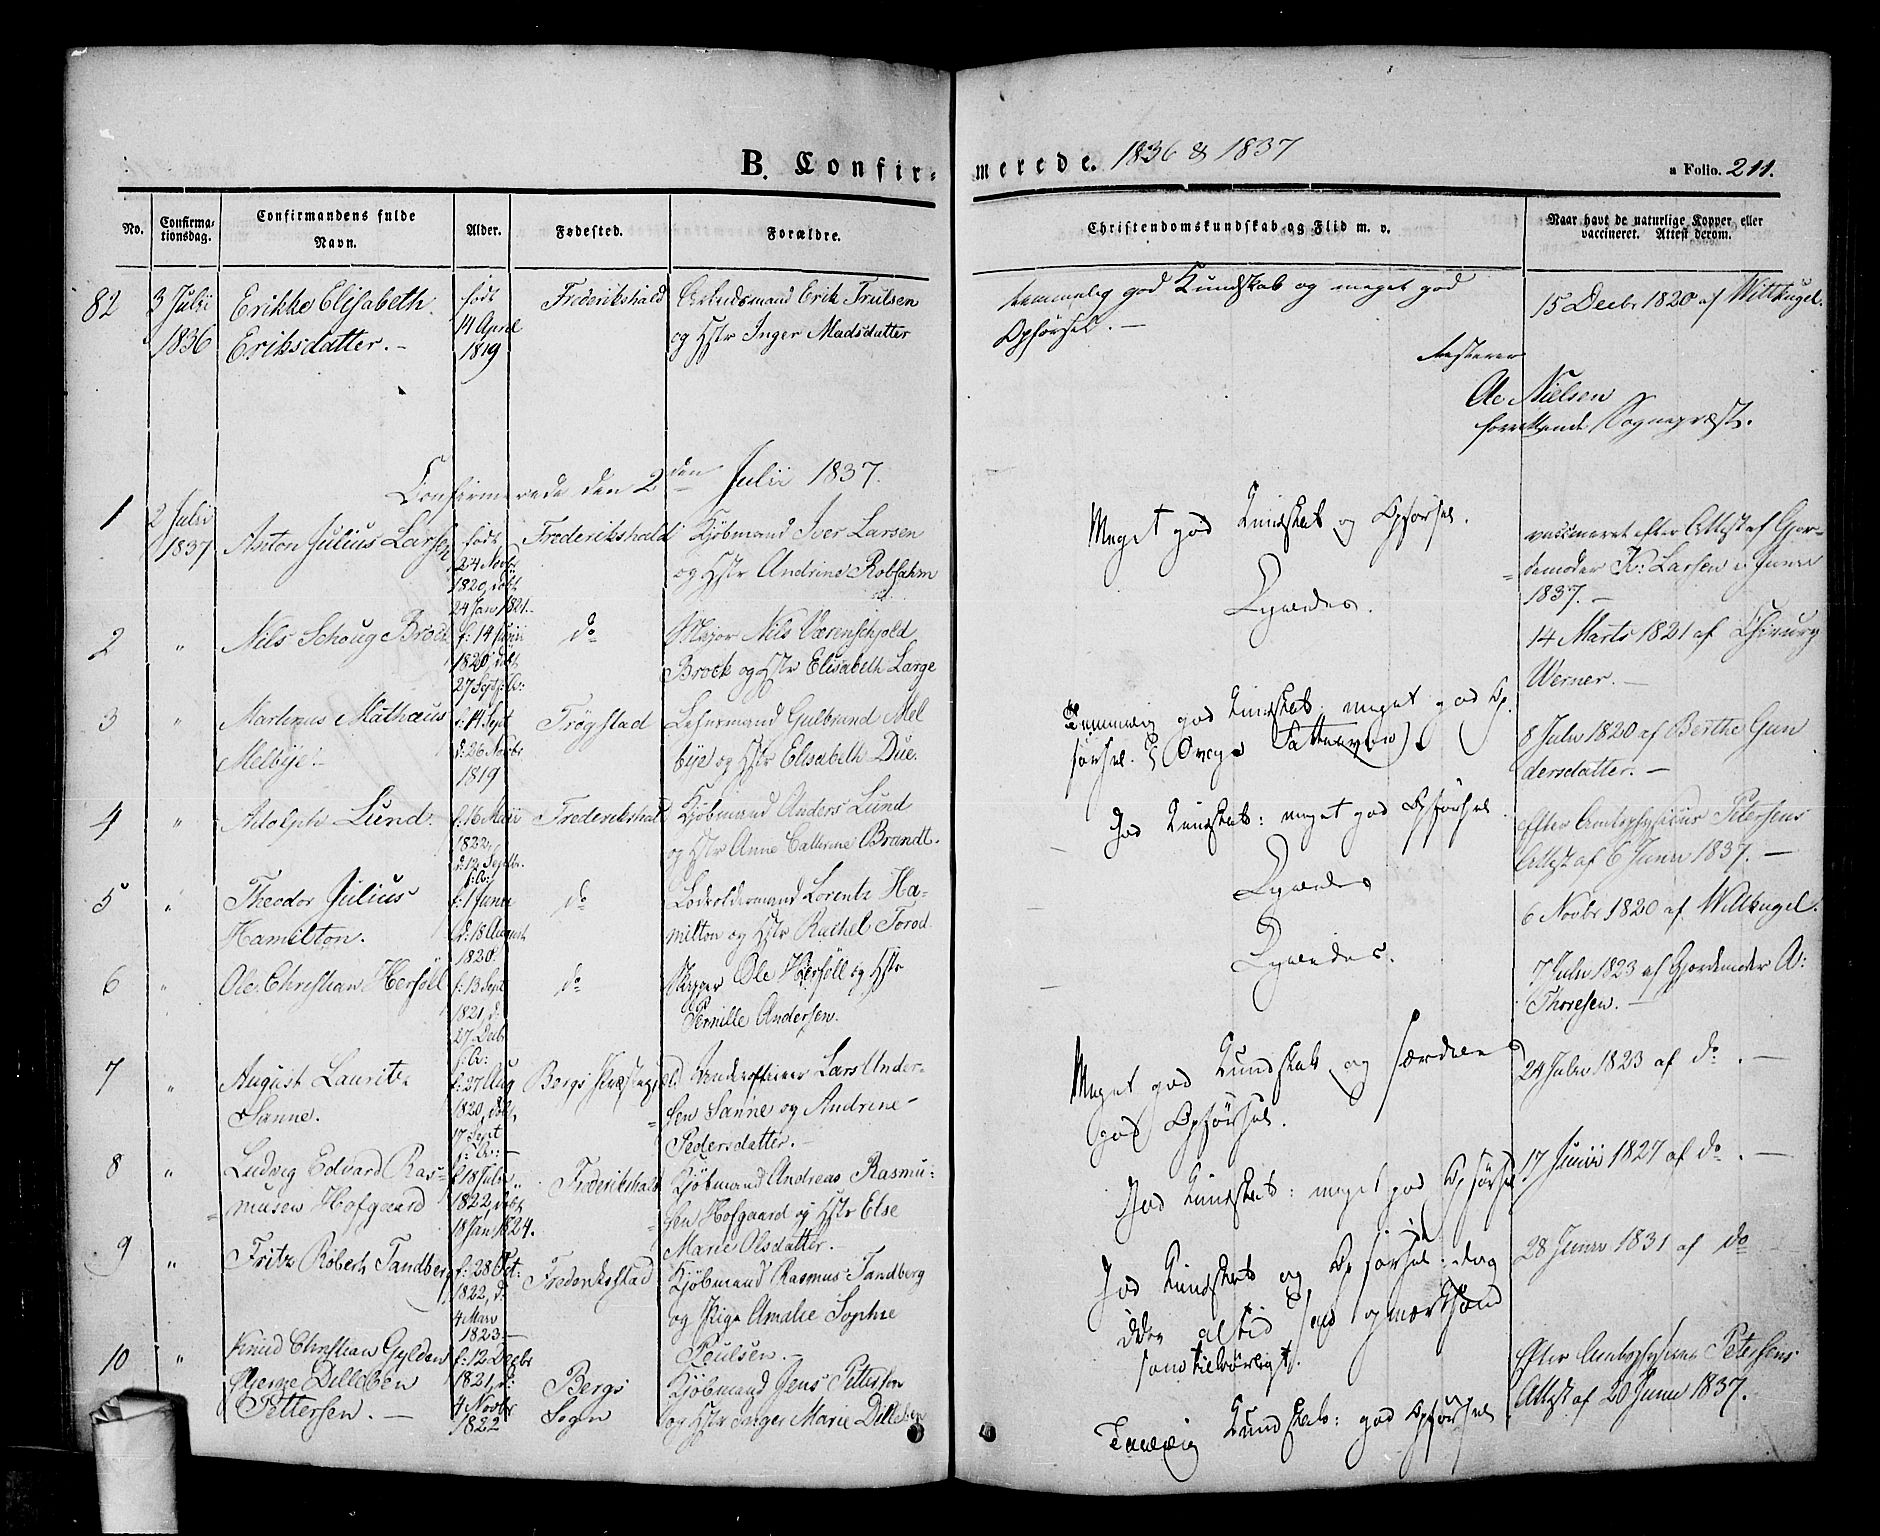 B. Confir-
merede. 1836 & 1837
a Folio. 211.
No.
Confirma-
tionsdag.
Confirmandens fulde
Navn.
Alder.
Fødested.
Forældre.
Christendomskundskab og Flid m. v.
Naar havt de naturlige Kopper eller
vaccineret. Attest derom.
82
3 Julii
1836
Erikke Elisabeth
Eriksdatter. -
født
14 April
1819
Frederikshald
Arbeidsmand Erik Trulsen
og Hstr Inger Madsdatter
temmelig god Kundskab og meget god
Opførsel. -
15 Decbr 1820 af Wittkugel.
testerer
Nielsen
Sognepræst.
Confirmerede den 2den Julii 1837.
1
2 Julii
1837
Anton Julius Larsen
født
24 Novbr
1820, døbt
24 Jan 1821.
Frederikshald
Kjøbmand Iver Larsen
og Hstr Andrine Robsahm
Meget god Kundskab og Opførsel.
vaccineret efter Attest af Gjor-
demoder K: Larsen i Junii
1837. -
2
"
Nils Schoug Brock
f: 14 Junii
1820, døbt
27 Sept: s: A:
do
Major Nils Værenschjold
Brock og Hstr Elisabeth Lange
Ligeledes.
14 Marts 1821 af Chirurg
Werner. -
3
"
Martinus Mathæus
Melbye. -
f: 14 Sept
d: 26 Novbr
1819
Trøgstad
Lehnsmand Gulbrand Mel
bye og Hstr Elisabeth Due.
Temmelig god Kundskab; meget god Op-
førsel.
8 Julii 1820 af Berthe Gun
dersdatter. -
4
"
Adolph Lund.
f: 16 Maii
1822,
d: 12 Septbr.
s: A:
Frederikshald
Kjøbmand Anders Lund
og Hstr Anne Cathrine Brandt.
God Kundskab: meget god Opførsel.
Efter Amtsphysicus Petersens
Attest af 6 Junii 1837. -
5
"
Theodor Julius
Hamilton.
f: 1 Junii
d: 18 August
1820.
do
Lodsoldermand Lorentz Ha-
milton og Hstr Rachel Torod.
Ligeledes
6 Novbr 1820 af Wittkugel.
6
"
Ole Christian Hersöll
f: 13 Sept
1821, d.
27 Decbr
s: A:
do
Skipper Ole Hersöll og Hstr
Pernille Andersen.
Ligeledes.
7 Julii 1823 af Gjordemoder A:
Thoresen. -
7
"
August Lauritz
Sanne.
f: 27 Aug
1820, døbt,
17 Sept
s: A: -
Bergs Præstegjeld
Underofficier Lars Ander-
sen Sanne og Andrine
Pedersdatter. -
Meget god Kundskab og særdeles
god Opførsel.
24 Julii 1823 af do. -
8
"
Ludvig Edvard Ras-
musen Hofgaard
f: 18 Julii
1822, døbt
18 Jan 1824.
Frederikshald
Kjøbmand Andreas Rasmu-
sen Hofgaard og Hstr Else
Marie Olsdatter.
God Kundskab: meget god Opførsel
17 Junii 1827 af do. -
9
"
Fritz Robert Tandberg
f: 28 Oct:
1822, d:
4 Mars
1823 -
Frederikstad
Kjøbmand Rasmus Tandberg
og Pige Amalie Sophie
Poulsen. -
God Kundskab og Opførsel: dog
ikke altid saa opmærksom
som tilbørligt.
28 Junii 1831 af do -
10
"
Knud Christian Gylden
Dilleben
Pettersen. -
f: 12 Decbr
1821, d:
4 Novbr
1822
Bergs
Sogn
Kjøbmand Jens Petterson
og Hstr Inger Marie Dilleben
Kundskab: god Opførsel
Efter Amtsphysicus Petersens
Attest af 20 Junii 1837.